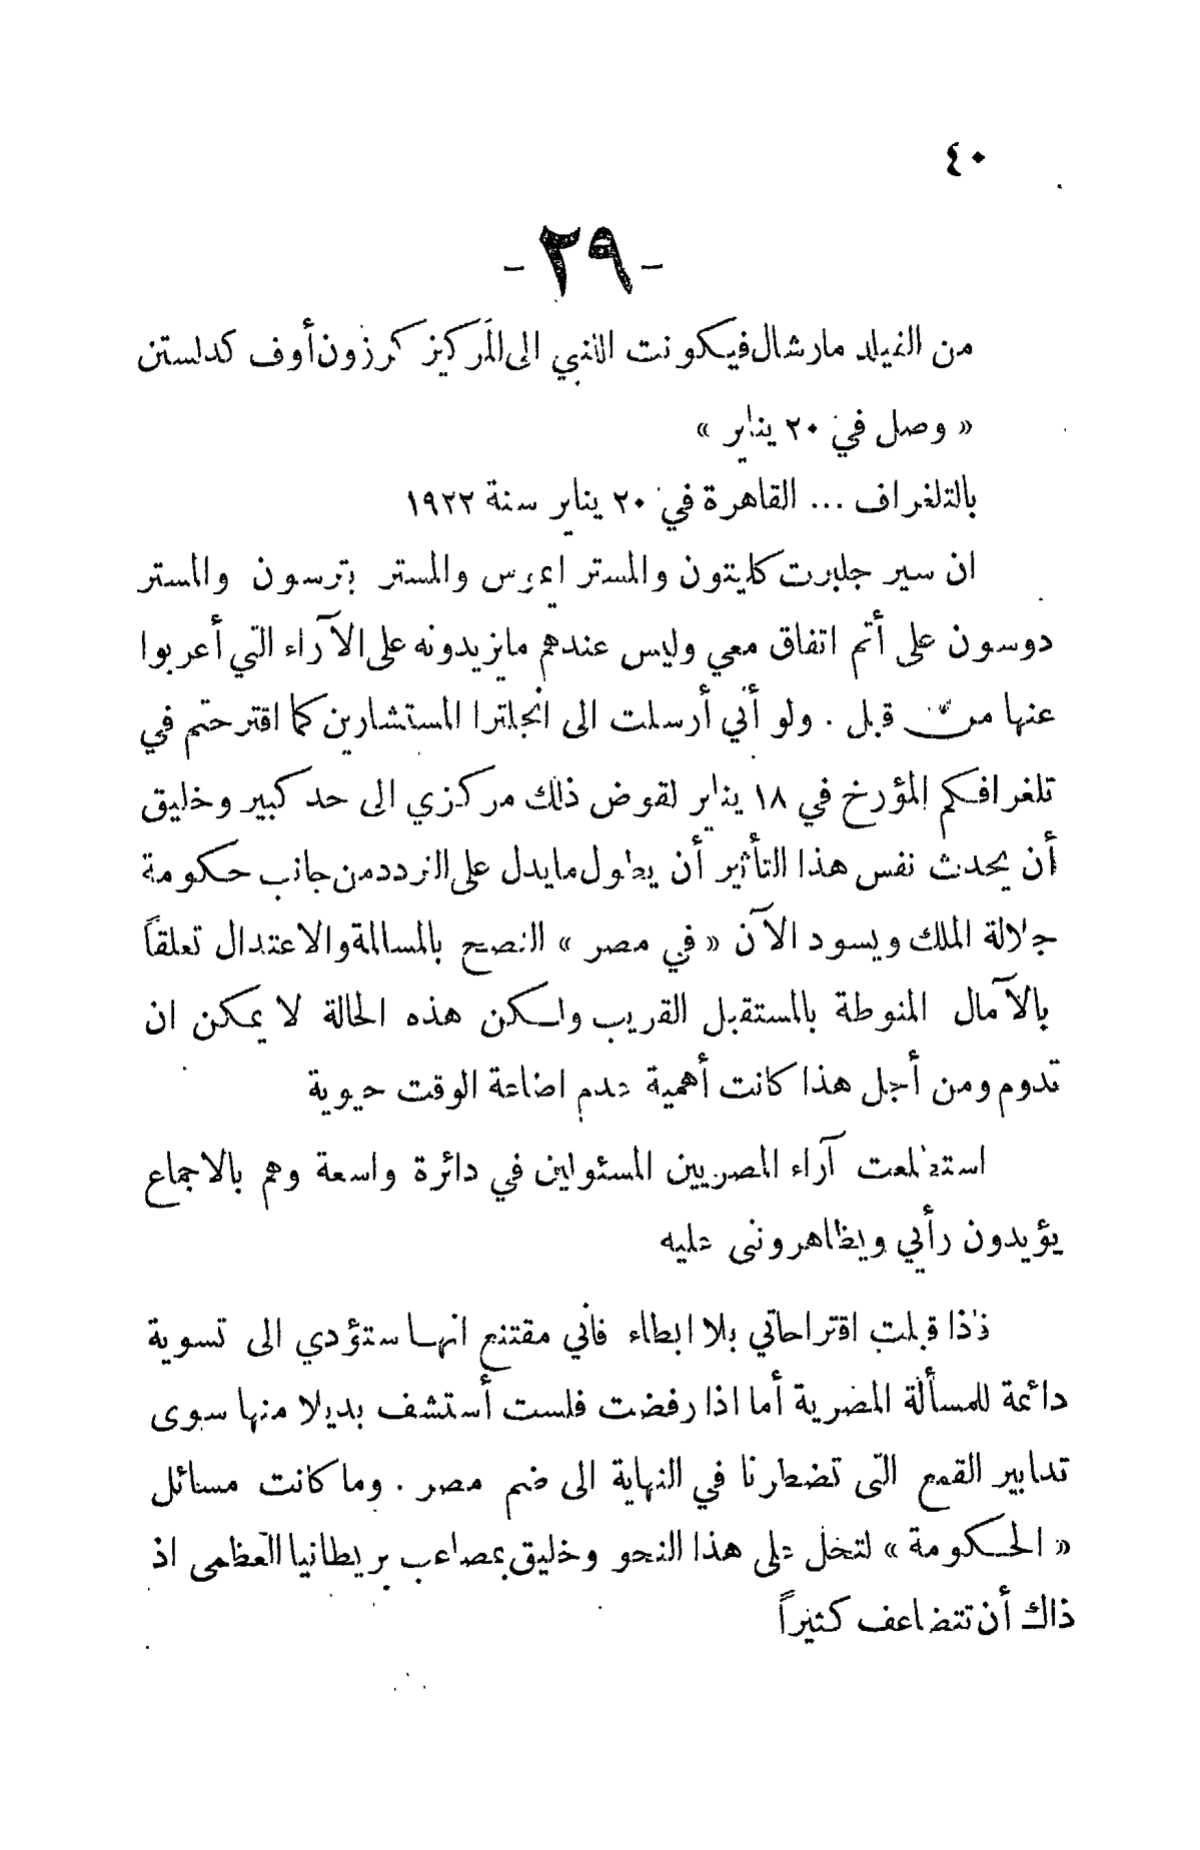 ٤٠
- ٢٩ -
من الفيلد مارشال فيكونت اللنبي الى المركيز كرزون أوف كدلستن
« وصل في ٢٠ يناير »
بالتلغراف ... القاهرة في ٢٠ يناير سنة ١٩٢٢
ان سير جلبرت كايتون والمستر ايموس والمستر بترسون والمستر
دوسون على أتم اتفاق معي وليس عندهم مايزيدونه على الآراء التي أعربوا
عنها من قبل . ولو أني أرسلت الى انجلترا المستشارين كما اقترحتم في
تلغرافكم المؤرخ في ١٨ يناير لقوض ذلك مركزي الى حد كبير وخليق
أن يحدث نفس هذا التأثير أن يطول مايدل على التردد من جانب حكومة
جلالة الملك ويسود الآن « في مصر » النصح بالمسالمة والاعتدال تعلقاً
بالآمال المنوطة بالمستقبل القريب ولكن هذه الحالة لا يمكن ان
تدوم ومن أجل هذا كانت أهمية عدم اضاعة الوقت حيوية
استطلعت آراء المصريين المسئولين في دائرة واسعة وهم بالاجماع
يؤيدون رأيي ويظاهرونى عليه
فاذا قبلت اقتراحاتي بلا ابطاء فأني مقتنع انها ستؤدي الى تسوية
دائمة للمسألة المصرية أما اذا رفضت فلست أستشف بديلا منها سوى
تدابير القمع التى تضطرنا في النهاية الى ضم مصر . وما كانت مسائل
« الحكومة » لتحل على هذا النحو وخليق بمصاعب بريطانيا العظمى اذ
ذاك أن تتضاعف كثيراً